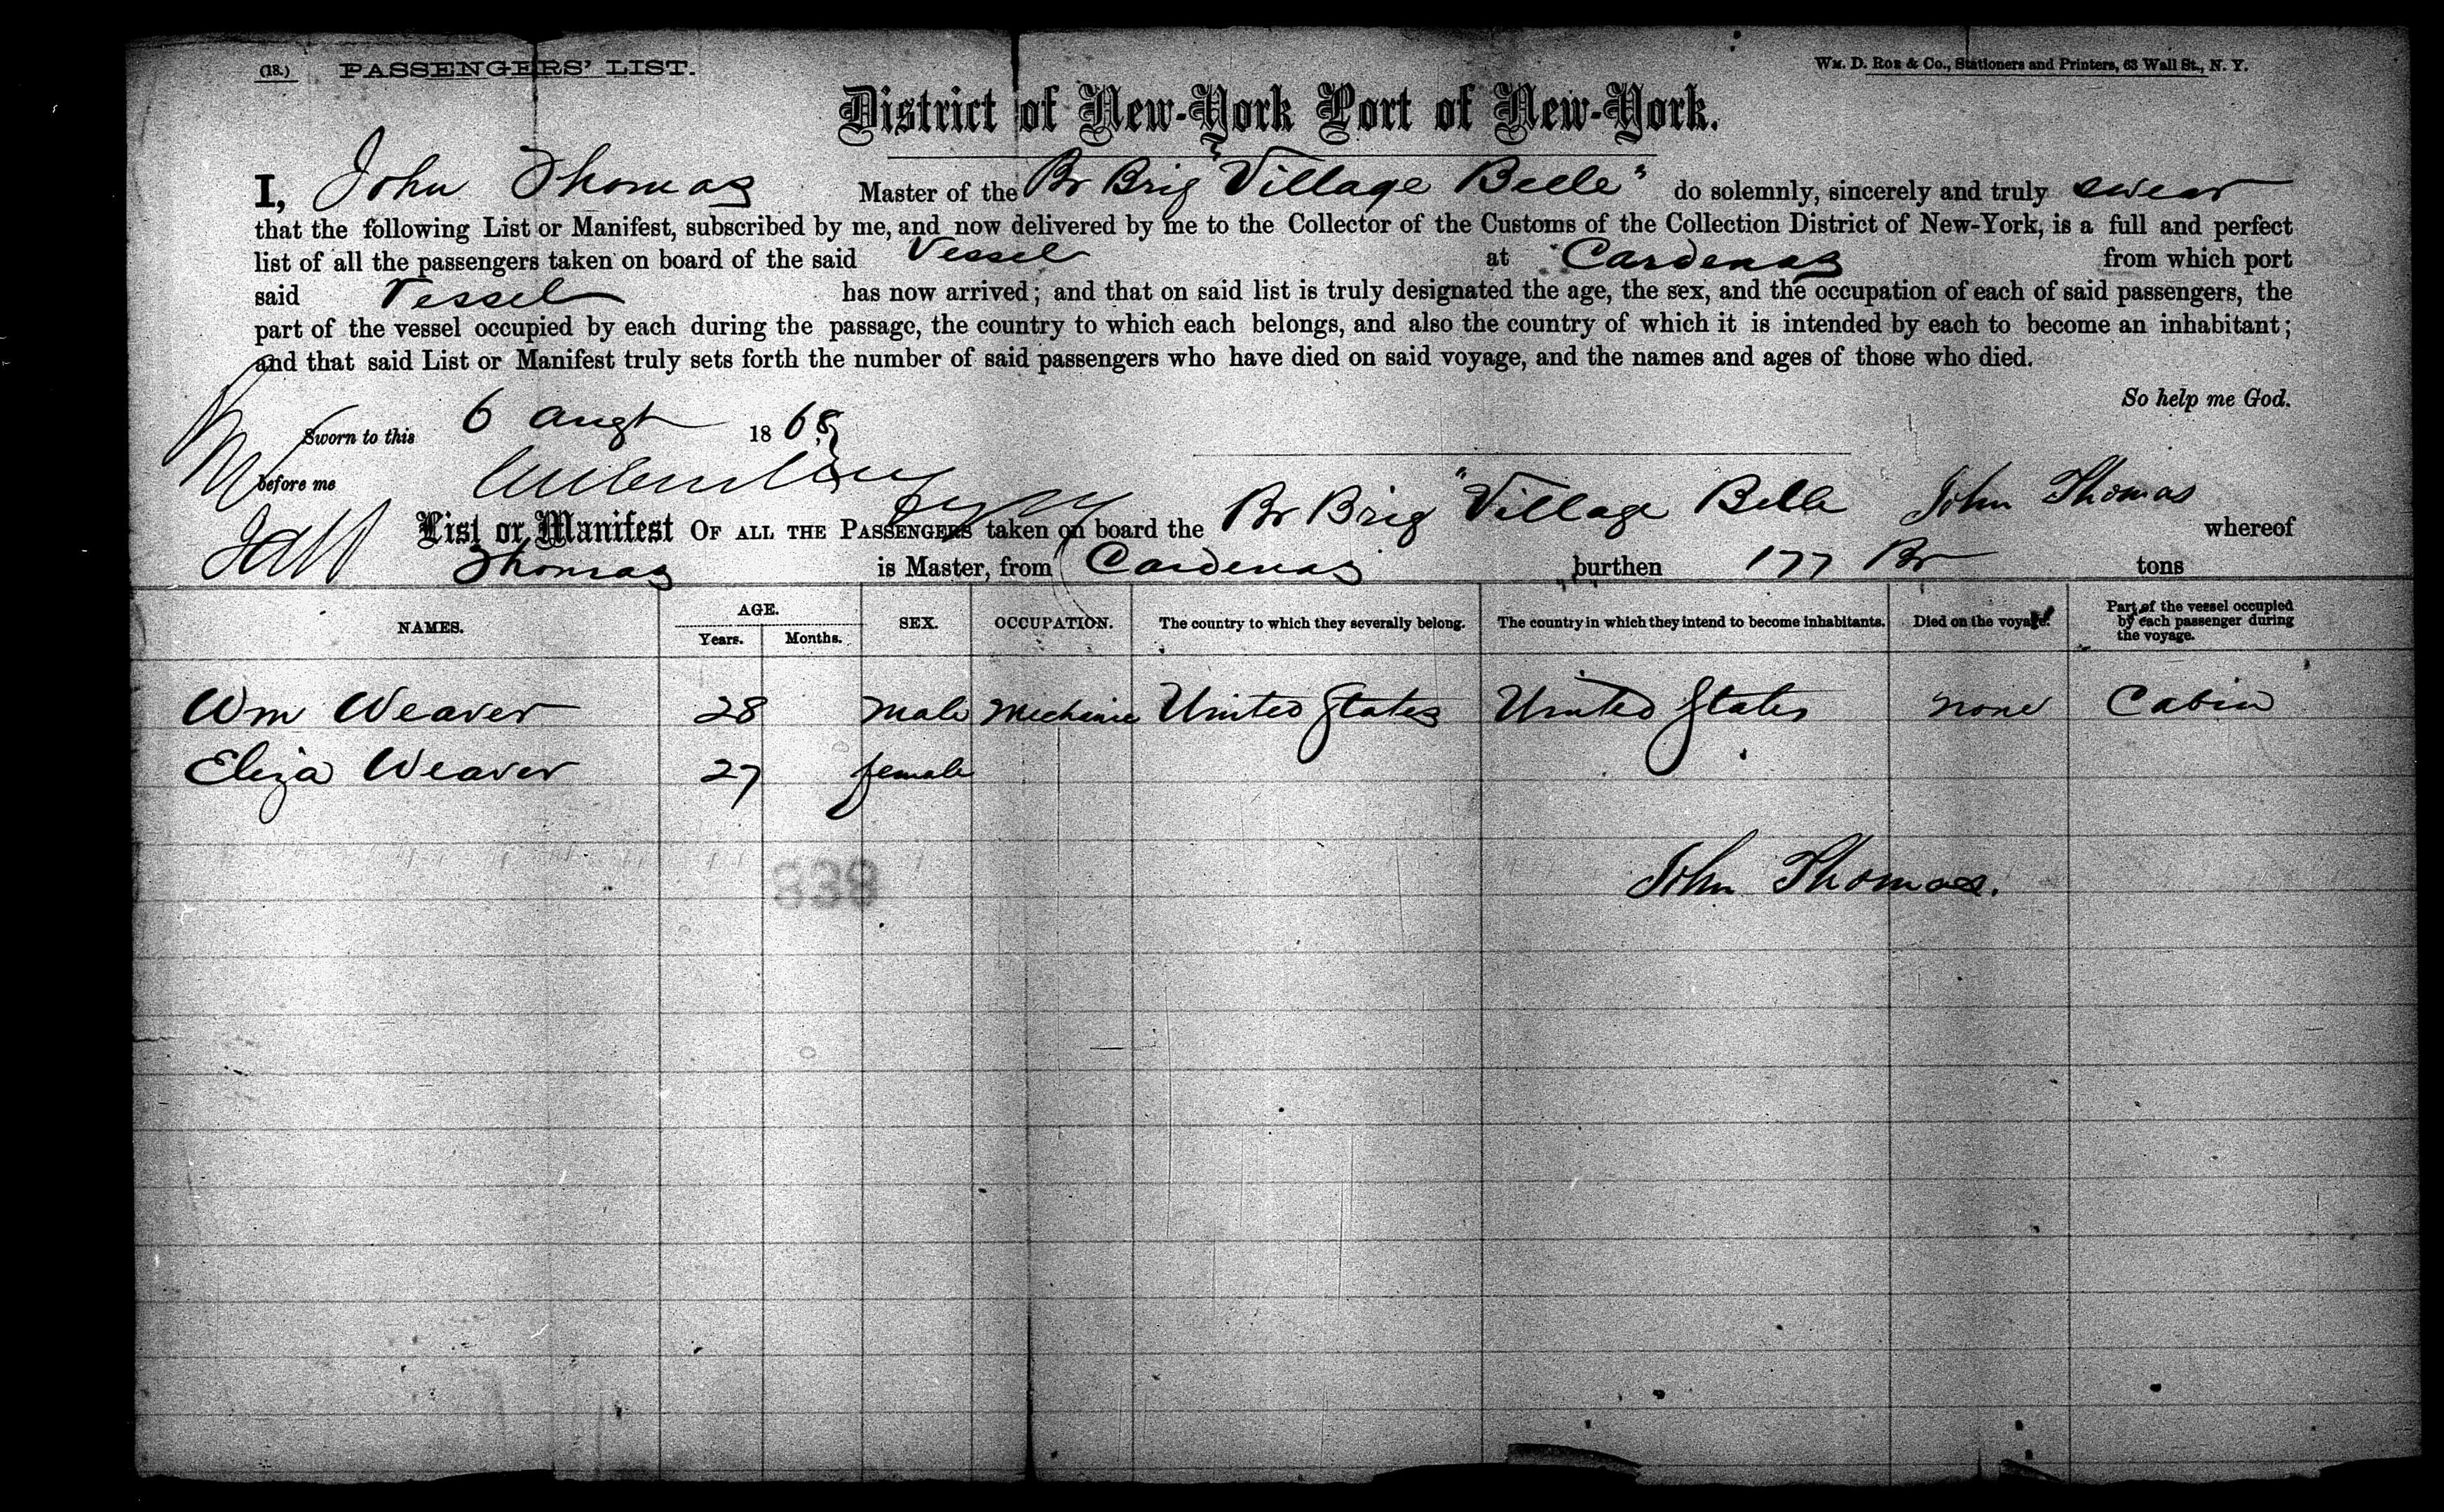 (18.) PASSENGERS' LIST.
Wm. D. Roe & Co., Stationers and Printers, 63 Wall St., N. Y.
District of New-York Port of New-York.
I, John Thomas Master of the Br Brig "Village Belle" do solemnly, sincerely and truly swear
that the following List or Manifest, subscribed by me, and now delivered by me to the Collector of the Customs of the Collection District of New-York, is a full and perfect
list of all the passengers taken on board of the said Vessel at Cardenas from which port
said Vessel has now arrived; and that on said list is truly designated the age, the sex, and the occupation of each of said passengers, the
part of the vessel occupied by each during the passage, the country to which each belongs, and also the country of which it is intended by each to become an inhabitant;
and that said List or Manifest truly sets forth the number of said passengers who have died on said voyage, and the names and ages of those who died.
So help me God.
Sworn to this 6 Augt 1868
before me
List or Manifest OF ALL THE PASSENGERS taken on board the Br Brig "Village Belle John Thomas whereof
Thomas is Master, from Cardenas burthen 177 Br tons
NAMES. AGE. Years. Months. SEX. OCCUPATION. The country to which they severally belong. The country in which they intend to become inhabitants. Died on the voyage. Part of the vessel occupied by each passenger during the voyage.
Wm Weaver 28 Male Mechanic United States United States none Cabin
Eliza Weaver 27 female
338
John Thomas.